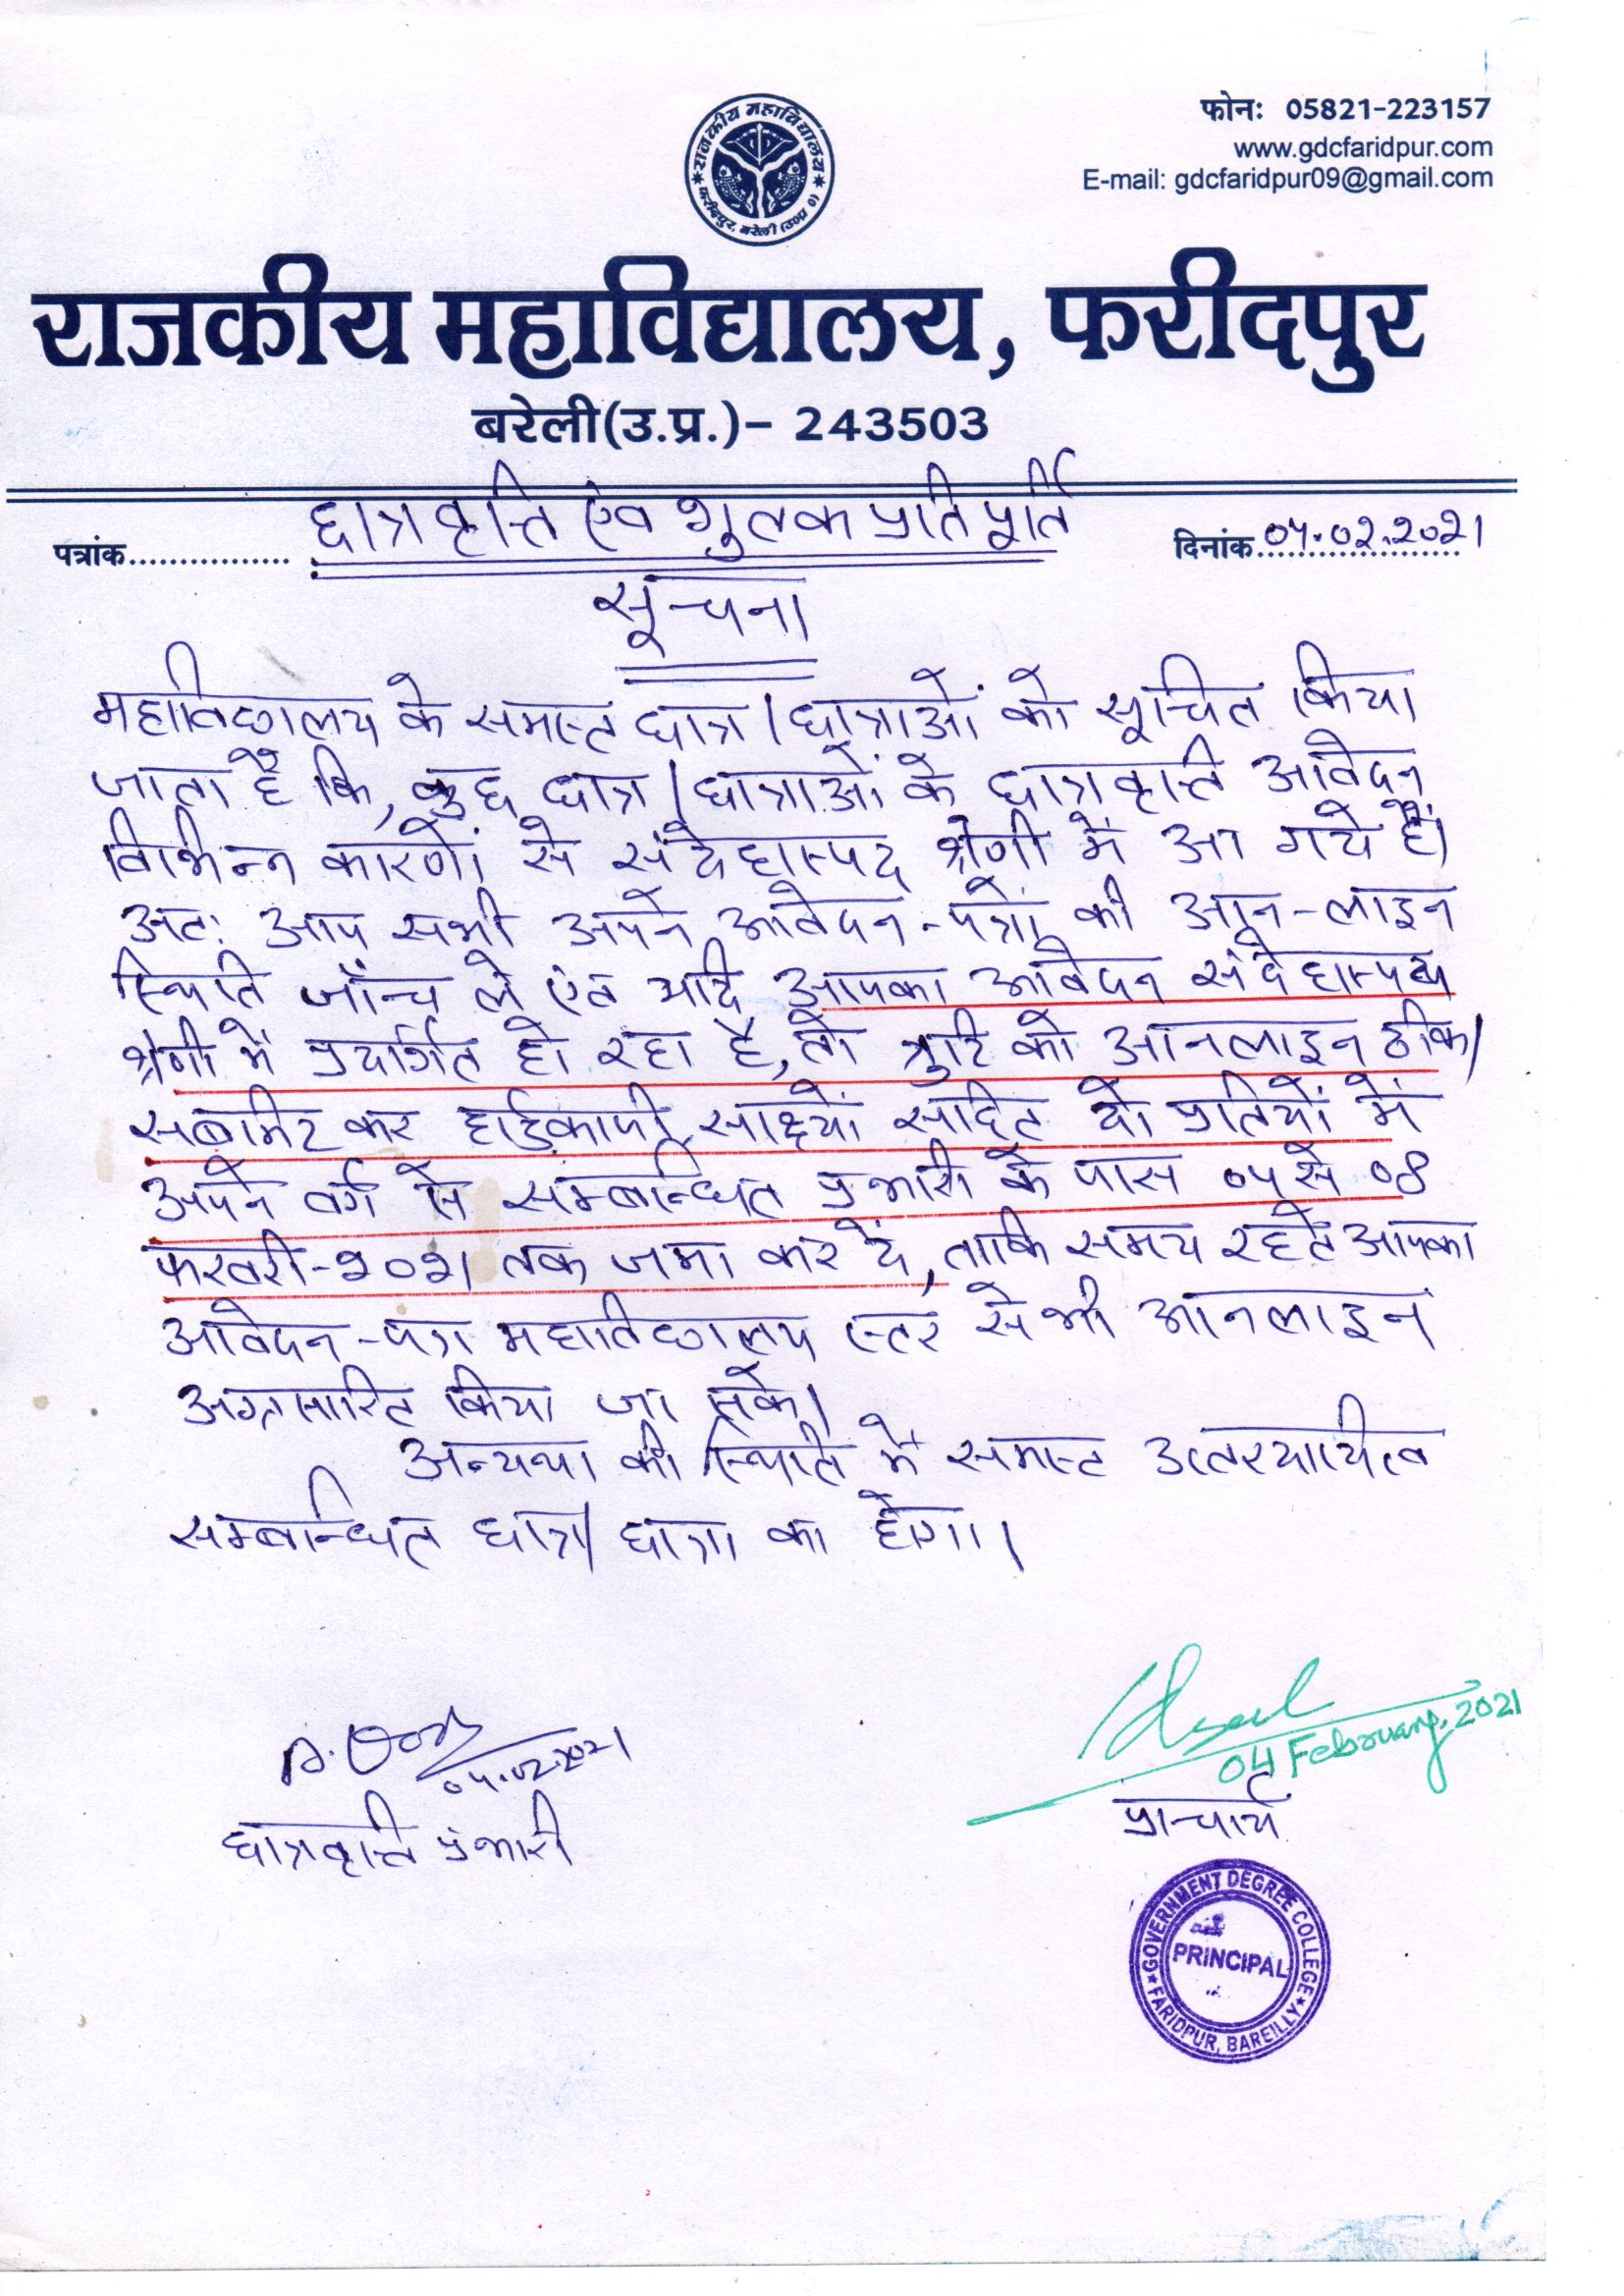 राजकीय महाविद्यालय
फरीदपुर, बरेली (उ०प्र०)
फोनः 05821-223157
www.gdcfaridpur.com
E-mail: gdcfaridpur09@gmail.com
राजकीय महाविद्यालय, फरीदपुर
बरेली(उ.प्र.)- 243503
छात्रवृत्ति एंव शुल्क प्रतिपूर्ति
पत्रांक................ दिनांक 04.02.2021
सूचना
महाविद्यालय के समस्त छात्र/छात्राओं को सूचित किया
जाता है कि, कुछ छात्र/छात्राओं के छात्रवृत्ति आवेदन
विभिन्न कारणों से संदेहास्पद श्रेणी में आ गये हैं।
अतः आप सभी अपने आवेदन-पत्रों की आन-लाइन
स्थिति जॉच ले एंव यदि आपका आवेदन संदेहास्पद
श्रेणी में प्रदर्शित हो रहा है, तो त्रुटि को आनलाइन ठीक/
सबमिट कर हार्डकापी साक्ष्यों सहित दो प्रतियों में
अपने वर्ग से सम्बन्धित प्रभारी के पास 04 से 08
फरवरी-2021 तक जमा कर दें, ताकि समय रहते आपका
आवेदन-पत्र महाविद्यालय स्तर से भी आनलाइन
अग्रसारित किया जा सके।
अन्यथा की स्थिति में समस्त उत्तरदायित्व
सम्बन्धित छात्र/छात्रा का होगा।
04.02.2021
छात्रवृत्ति प्रभारी
04 February, 2021
प्राचार्य
GOVERNMENT DEGREE COLLEGE
PRINCIPAL
FARIDPUR, BAREILLY